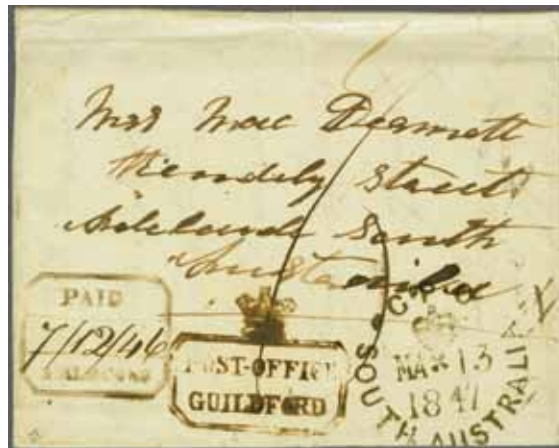 Mrs Mac Dermott
Hindely Street
Adelaide South
Australia
PAID
7/12/46
POST-OFFICE
GUILDFORD
G.P.O
MAR 13
1847
SOUTH AUSTRALIA